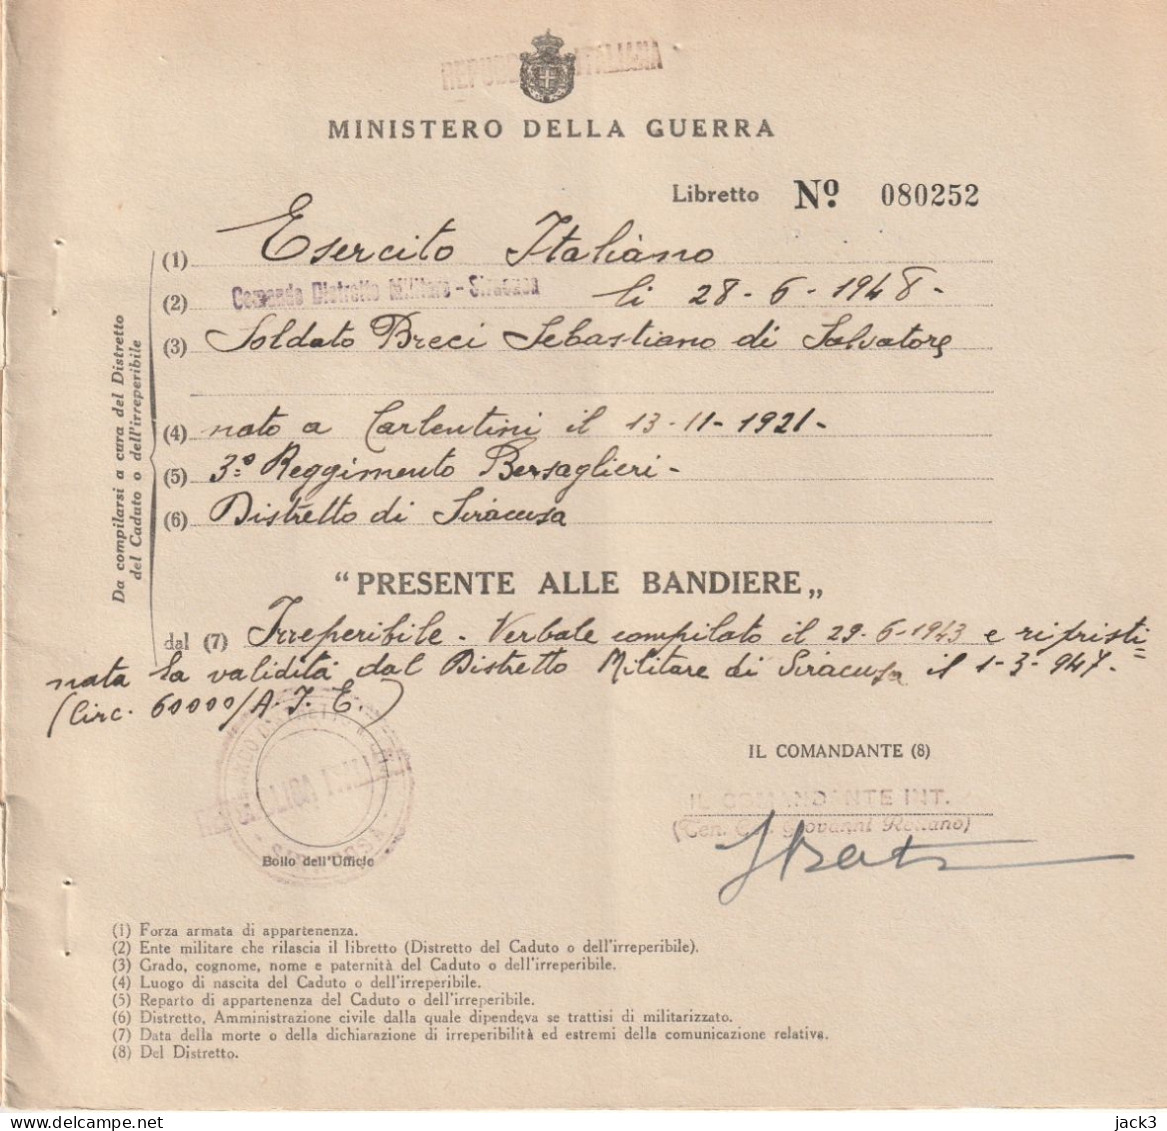 REPUBBLICA ITALIANA
MINISTERO DELLA GUERRA
Libretto Nº 080252
(1) Esercito Italiano
(2) Comando Distretto Militare - Siracusa li 28-6-1948-
(3) Soldato Breci Sebastiano di Salvatore
(4) nato a Carlentini il 13-11-1921-
(5) 3º Reggimento Bersaglieri-
(6) Distretto di Siracusa
Da compilarsi a cura del Distretto
del Caduto o dell'irreperibile
“PRESENTE ALLE BANDIERE„
dal (7) Irreperibile - Verbale compilato il 29-6-1943 e ripristi=
nata la validità dal Distretto Militare di Siracusa il 1-3-947-
(Circ. 60000/A.I.E.)
COMANDO DISTRETTO
REPUBBLICA ITALIANA
SIRACUSA
Bollo dell'Ufficio
IL COMANDANTE (8)
IL COMANDANTE INT.
(Ten. Giovanni
(1) Forza armata di appartenenza.
(2) Ente militare che rilascia il libretto (Distretto del Caduto o dell'irreperibile).
(3) Grado, cognome, nome e paternità del Caduto o dell'irreperibile.
(4) Luogo di nascita del Caduto o dell'irreperibile.
(5) Reparto di appartenenza del Caduto o dell'irreperibile.
(6) Distretto, Amministrazione civile dalla quale dipendeva se trattisi di militarizzato.
(7) Data della morte o della dichiarazione di irreperibilità ed estremi della comunicazione relativa.
(8) Del Distretto.
www.delcampe.net
jack3